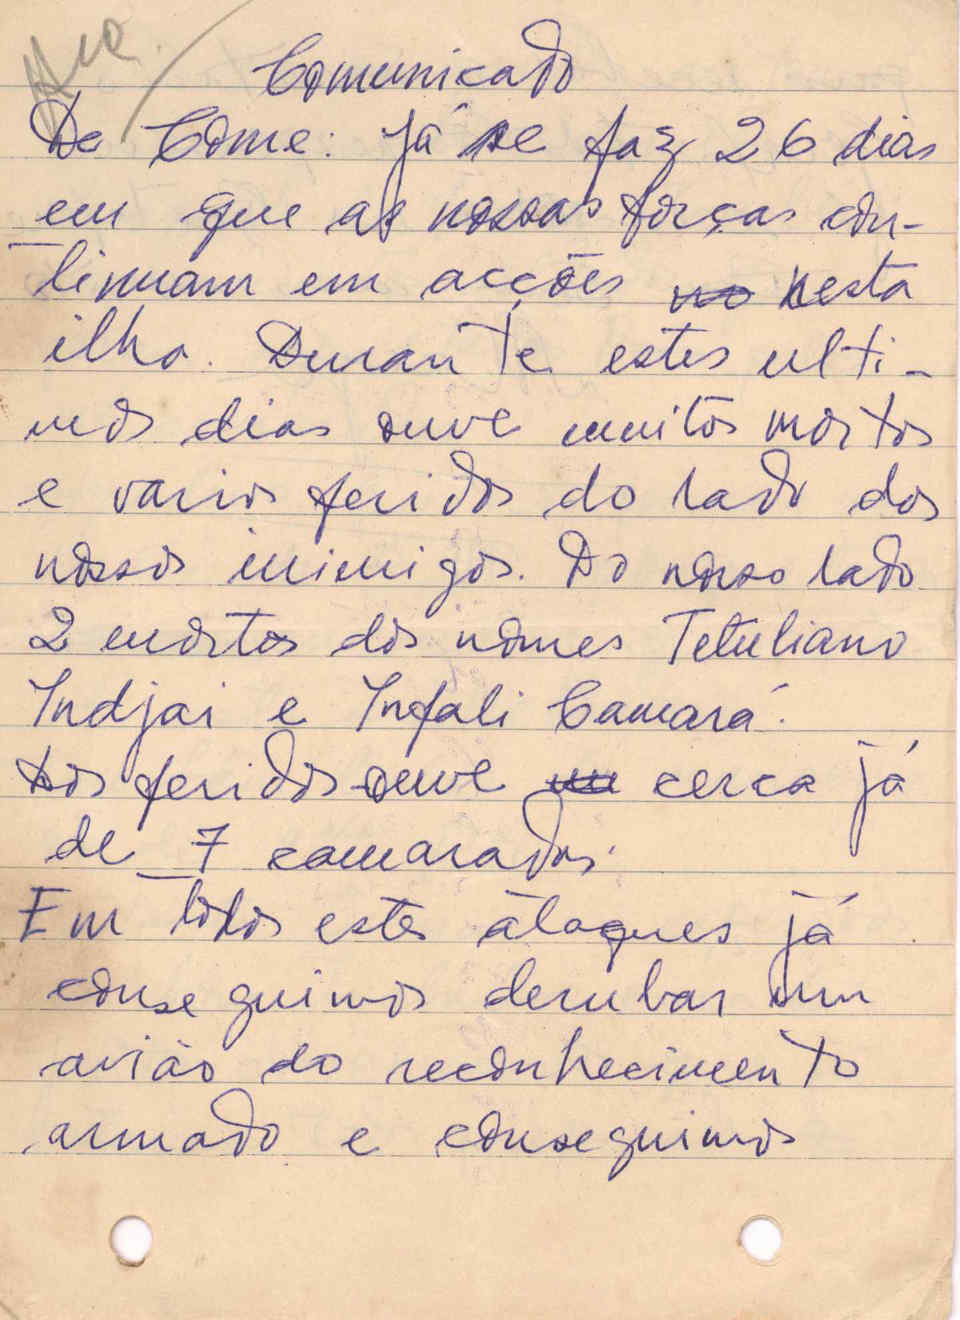 Comunicado
De Come: Já se faz 26 dias
em que as nossas forças con-
tinuam em acções no nesta
ilha. Durante estes ulti-
mos dias ouve muitos mortos
e varios feridos do lado dos
nossos inimigos. Do nosso lado
2 mortos dos nomes Tetuliano
Indjai e Infali Camará.
Dos feridos ouve cerca já
de 7 camaradas.
Em todos estes ataques já
conseguimos derubar um
avião do reconhecimento
armado e conseguimos